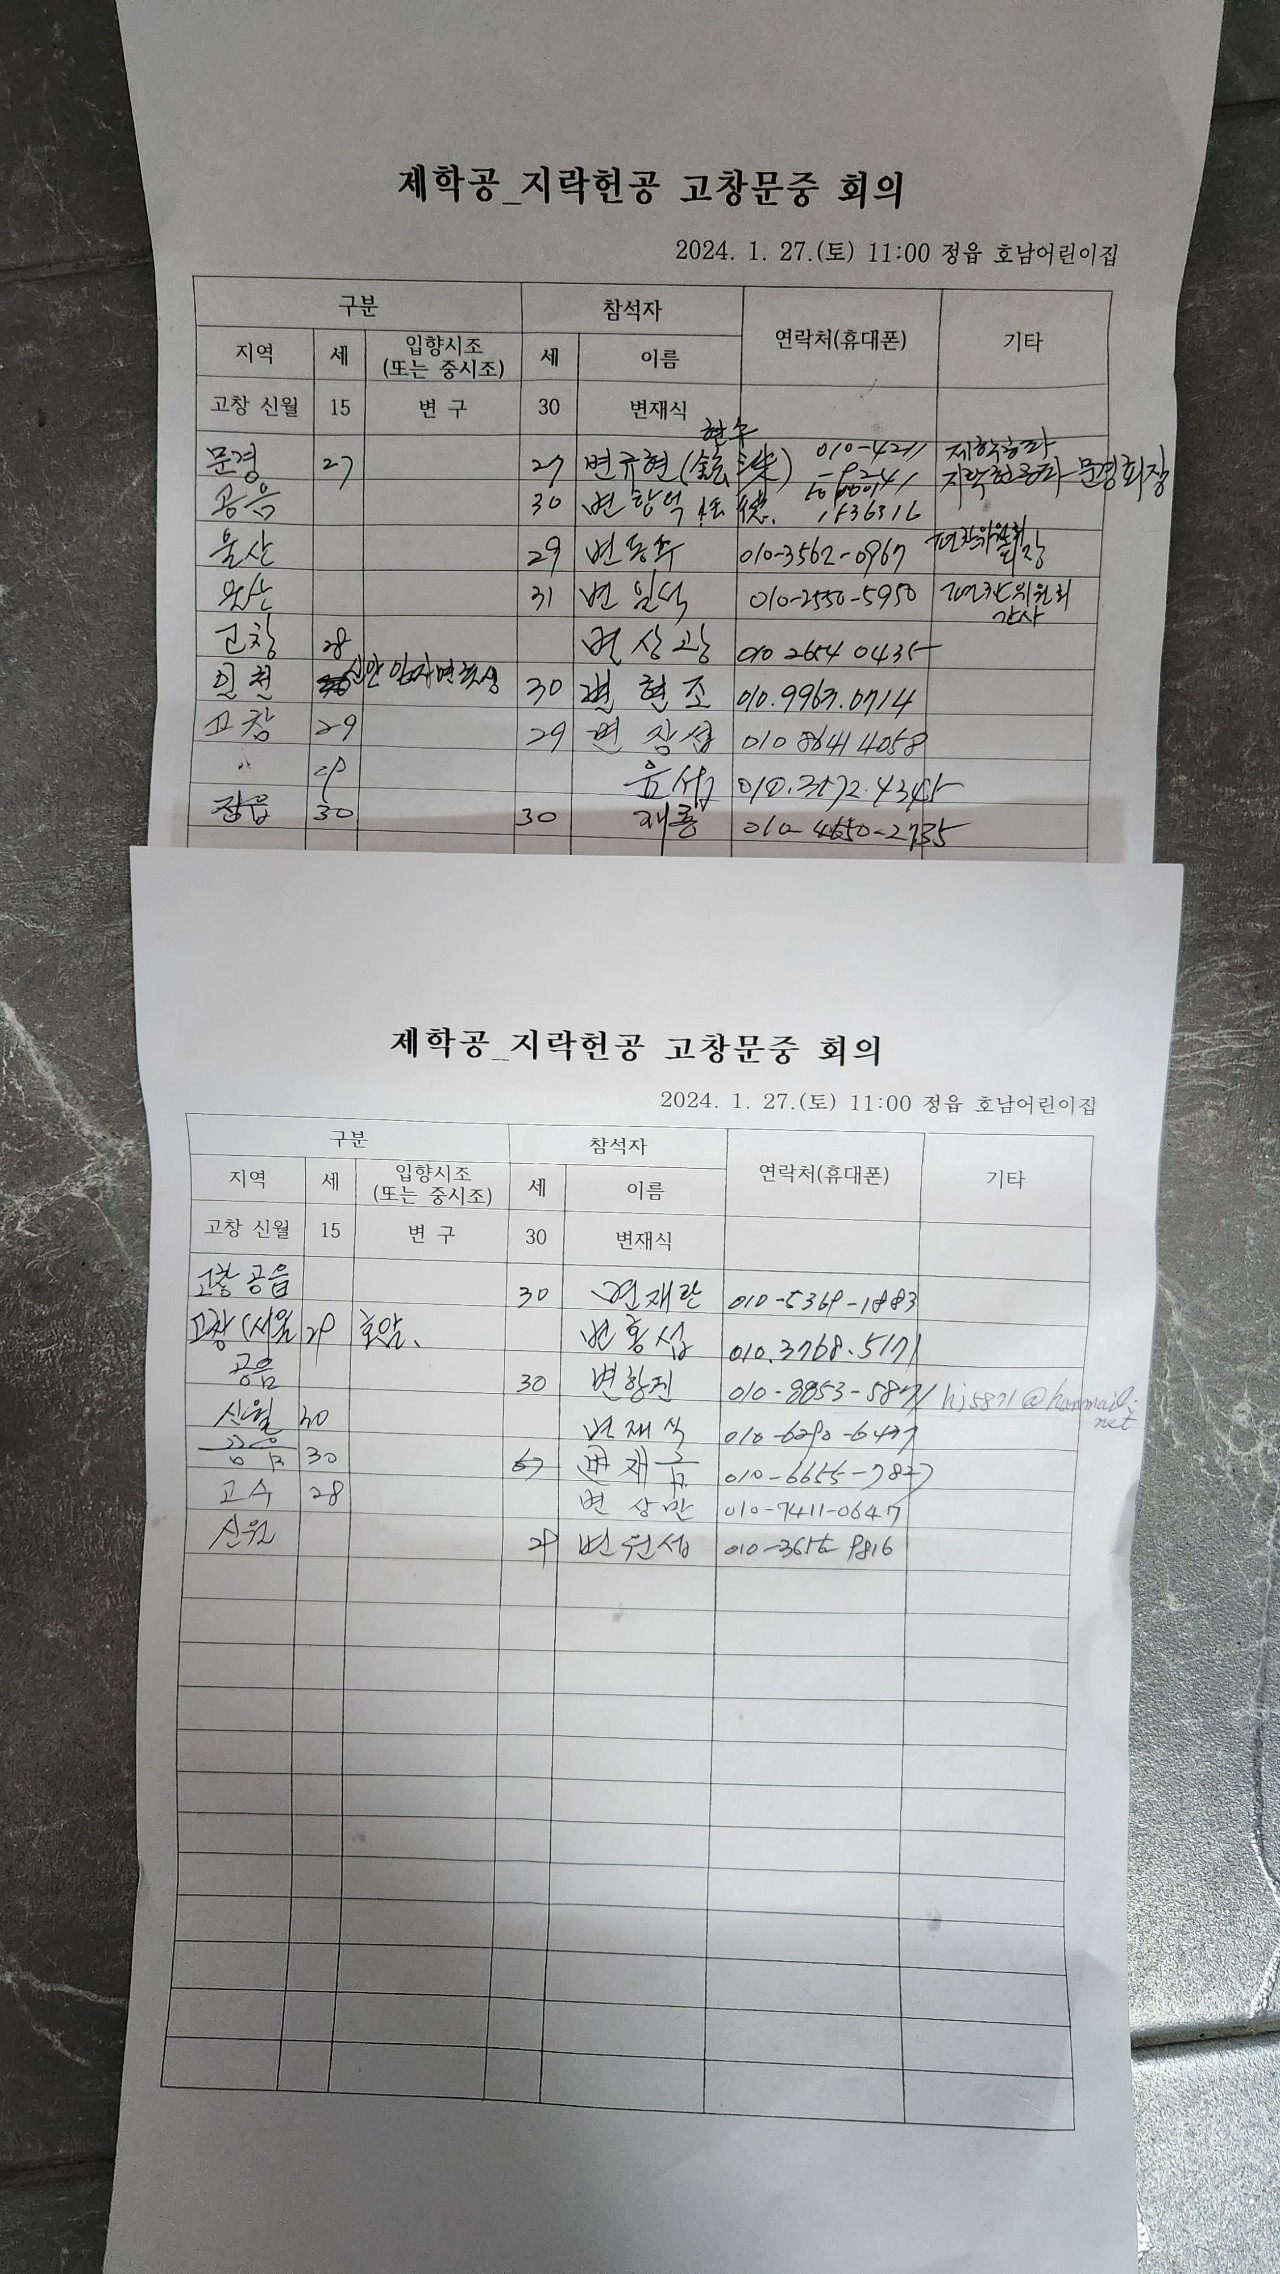 제학공_지락헌공 고창문중 회의
2024. 1. 27.(토) 11:00 정읍 호남어린이집
구분 참석자 연락처(휴대폰) 기타
지역 세 입향시조 (또는 중시조) 세 이름
고창 신월 15 변 구 30 변재식
현수
문경 27 27 변규현 010-4211 제학공파
공음 30 변항억 1536316
울산 29 변동수 010-3562-0967 편찬위원회 회장
울산 31 변일석 010-2550-5950 편찬위원회 간사
고창 28 변상광 010 2654 0435
인천 30 변현조 010.9967.0714
고창 29 29 변장섭 010 8641 4058
〃 29 윤섭 010.3572.4345
정읍 30 30 재룡 010-4650-2735
제학공_지락헌공 고창문중 회의
2024. 1. 27.(토) 11:00 정읍 호남어린이집
구분 참석자 연락처(휴대폰) 기타
지역 세 입향시조 (또는 중시조) 세 이름
고창 신월 15 변 구 30 변재식
고창 공음 30 변재란 010-5369-1883
고창(서울 29 호암. 변홍섭 010.3768.5171
공음 30 변항진 010-8853-5871 hj5871@hanmail.net
신월 30 변재식 010-6290-6497
공음 30 변재 010-6655-7827
고수 28 변상만 010-7411-0647
신월 29 변원섭 010-3656-9816